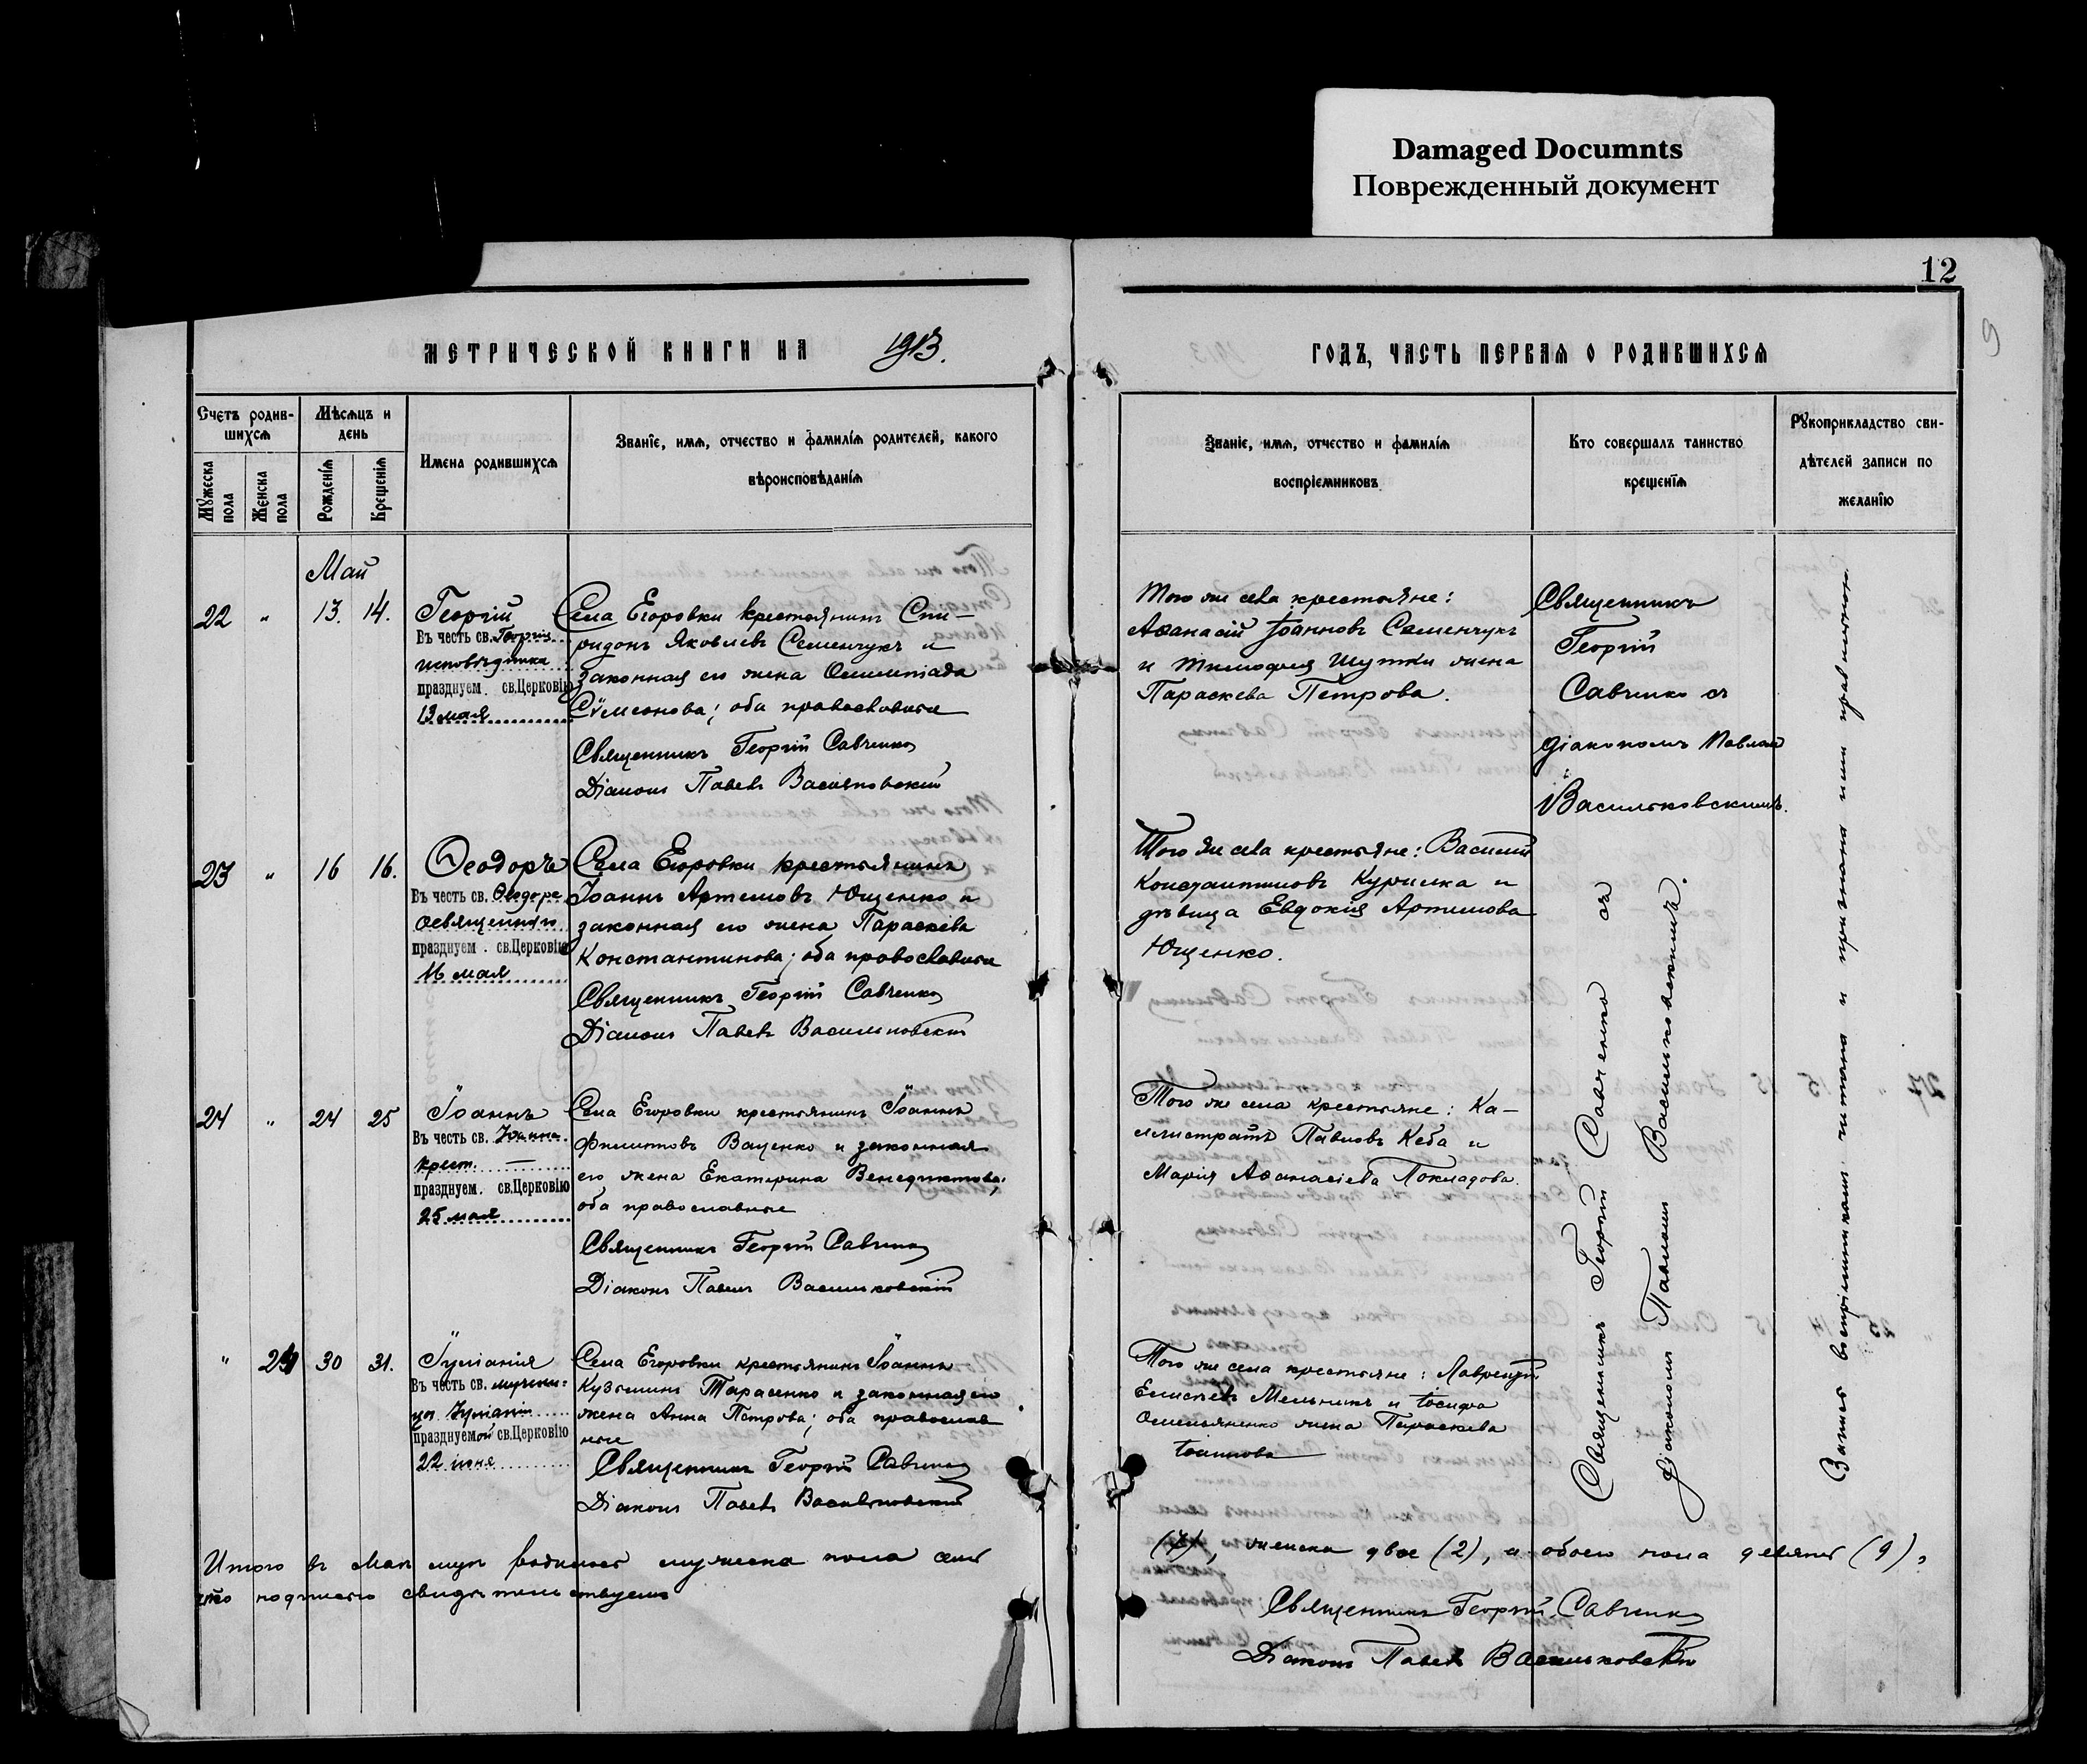 Damaged Documnts
Поврежденный документ
12
9
МЕТРИЧЕСКОЙ КНИГИ НА 1913.
ГОДЪ, ЧАСТЬ ПЕРВАЯ О РОДИВШИХСЯ
Счетъ родив-
шихся
Мѣсяцъ и
день
Мужеска
пола
Женска
пола
Рожденія
Крещенія
Имена родившихся
Званіе, имя, отчество и фамилія родителей, какого
вѣроисповѣданія
Званіе, имя, отчество и фамилія
воспріемниковъ
Кто совершалъ таинство
крещенія
Рукоприкладство сви-
дѣтелей записи по
желанію
Май
22 " 13. 14.
Георгій
Въ честь св. Георгія
исповѣдника
празднуем. св.Церковію
13 мая
Села Егоровки крестьянинъ Спи-
ридонъ Яковлевъ Семенчукъ и
законная его жена Олимпіада
Сѵмеонова; оба православные
Священникъ Георгій Савченко
Діаконъ Павелъ Васильковскій
Того же села крестьяне:
Аѳанасій Іоанновъ Семенчукъ
и Тимоѳея Шутки жена
Параскева Петрова.
Священникъ
Георгій
Савченко съ
діакономъ Павломъ
Васильковскимъ.
23 " 16 16.
Ѳеодоръ
Въ честь св. Ѳеодора
Освященнаго
празднуем. св.Церковію
16 мая
Села Егоровки крестьянинъ
Іоаннъ Артемовъ Ющенко и
законная его жена Параскева
Константинова; оба православные
Священникъ Георгій Савченко
Діаконъ Павелъ Васильковскій
Того же села крестьяне: Василій
Константиновъ Курилка и
дѣвица Евдокія Артемова
Ющенко.
24 " 24 25
Іоаннъ
Въ честь св. Іоанна
Крест.
празднуем. св.Церковію
25 мая
Села Егоровки крестьянинъ Іоаннъ
Филиповъ Ваценко и законная
его жена Екатерина Венедиктова;
оба православные
Священникъ Георгій Савченко
Діаконъ Павелъ Васильковскій
Того же села крестьяне: Ка-
листратъ Павловъ Кеба и
Марія Аѳанасіева Покладова.
" 30 31.
Іуліанія
Въ честь св. мучени-
цы Іуліаніи
празднуемой св.Церковію
22 іюня
Села Егоровки крестьянинъ Іоаннъ
Кузьминъ Тарасенко и законная его
жена Анна Петрова; оба православ
ные
Священникъ Георгій Савченко
Діаконъ Павелъ Васильковскій
Того же села крестьяне: Лаврентій
Елисеевъ Мельникъ и Іосифа
Омельяненко жена Параскева
Іоаннова
Священникъ Георгій Савченко съ
діакономъ Павломъ Васильковскимъ.
Запись воспріемникамъ читана и признана ими правильною.
Итого въ Маѣ мцѣ родилось мужеска пола семь
(7), женска двое (2), а обоего пола девять (9),
что подписью свидѣтельствуемъ
Священникъ Георгій Савченко
Діаконъ Павелъ Васильковскій